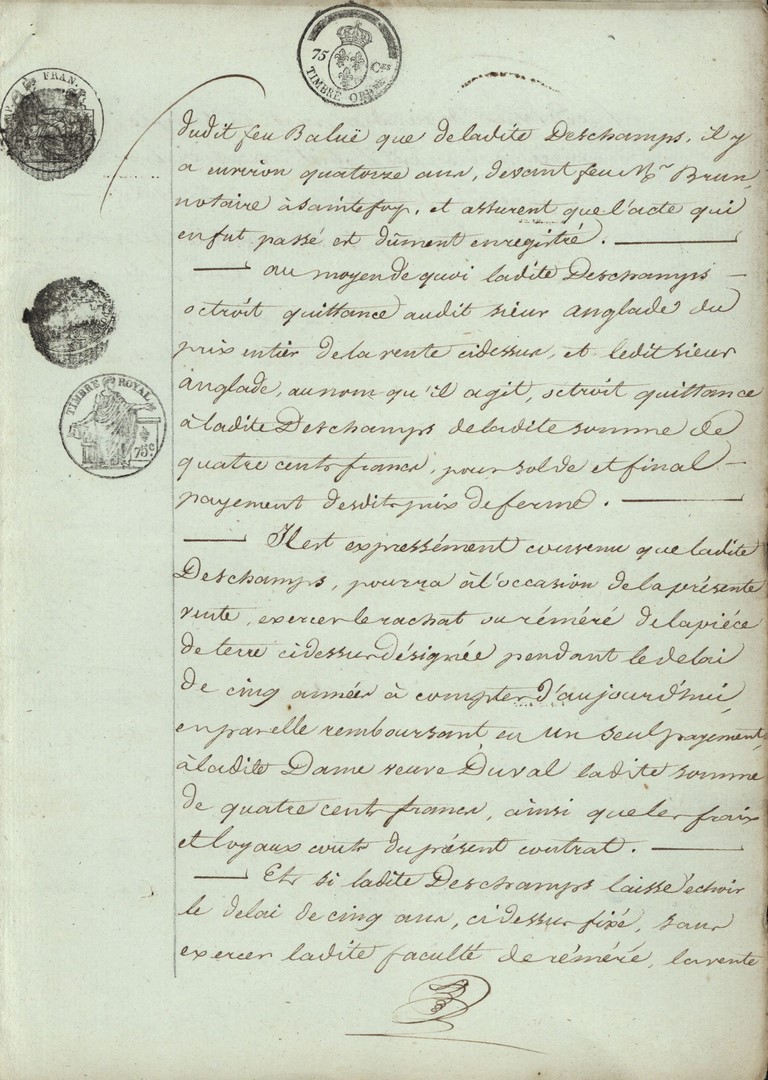 75 Ces
TIMBRE ORD
FRAN
TIMBRE ROYAL
75c
dudit feu Baluë que de ladite Deschamps, il y
a environ quatorze ans, devant feu Mr Brun
notaire à Saintefoy, et assurent que l'acte qui
en fut passé est dûment enregistré.
au moyen de quoi ladite Deschamps
octroit quittance audit sieur Anglade du
prix entier de la vente cidessus, et ledit sieur
Anglade, au nom qu'il agit, octroit quittance
à ladite Deschamps de ladite somme de
quatre cents francs, pour solde et final
payement desdits prix de ferme.
Il est expressément convenu que ladite
Deschamps, pourra à l'occasion de la présente
vente, exercer le rachat ou réméré de la piéce
de terre cidessus désignée pendant le delai
de cinq années à compter d'aujourd'hui,
en par elle remboursant en un seul payement,
à ladite Dame veuve Duval ladite somme
de quatre cents francs, ainsi que les frais
et loyaux couts du présent contrat.
Et si ladite Deschamps laisse échoir
le delai de cinq ans, cidessus fixé, sans
exercer ladite faculté de réméré, la vente